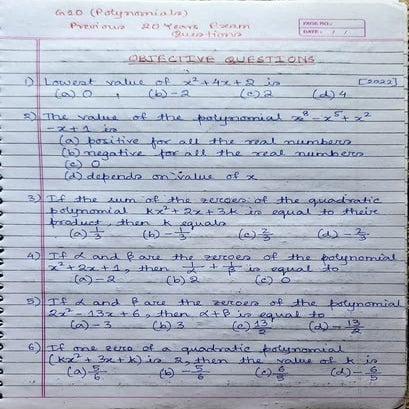 G10 (Polynomials)
Previous 20 Years Exam
Questions
PAGE NO.:
DATE: / /
OBJECTIVE QUESTIONS
1) Lowest value of x²+4x+2 is [2022]
(a) 0 , (b) -2 (c) 2 (d) 4
2) The value of the polynomial x⁸-x⁵+x²
-x+1 is
(a) positive for all the real numbers
(b) negative for all the real numbers
(c) 0
(d) depends on value of x
3) If the sum of the zeroes of the quadratic
polynomial kx²+2x+3k is equal to their
product, then k equals
(a) 1/3 (b) -1/3 (c) 2/3 (d) -2/3
4) If α and β are the zeroes of the polynomial
x²+2x+1, then 1/α + 1/β is equal to
(a) -2 (b) 2 (c) 0
5) If α and β are the zeroes of the polynomial
2x²-13x+6, then α+β is equal to
(a) -3 (b) 3 (c) 13/2 (d) -13/2
6) If one zero of a quadratic polynomial
(kx²+3x+k) is 2, then the value of k is
(a) 5/6 (b) -5/6 (c) 6/5 (d) -6/5